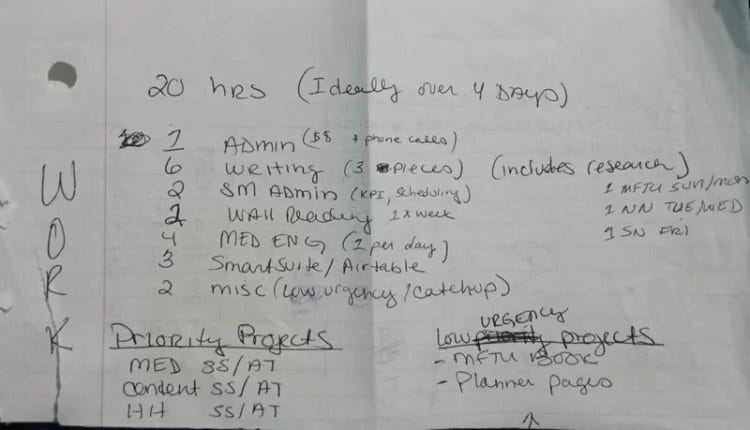 WORK
20 hrs (Ideally over 4 DAYS)
1 ADMIN ($$ + phone calls)
6 writing (3 pieces) (includes research)
2 SM ADMIN (KPI, scheduling)
2 WAII Reading 1x week
4 MED ENG (1 per day)
3 SmartSuite/Airtable
2 misc (low urgency/catchup)
1 MFTU SUN/mon
1 NN TUE/WED
1 SN FRI
Priority Projects
MED SS/AT
content SS/AT
HH SS/AT
low URGENCY projects
- MFTU BOOK
- Planner pages